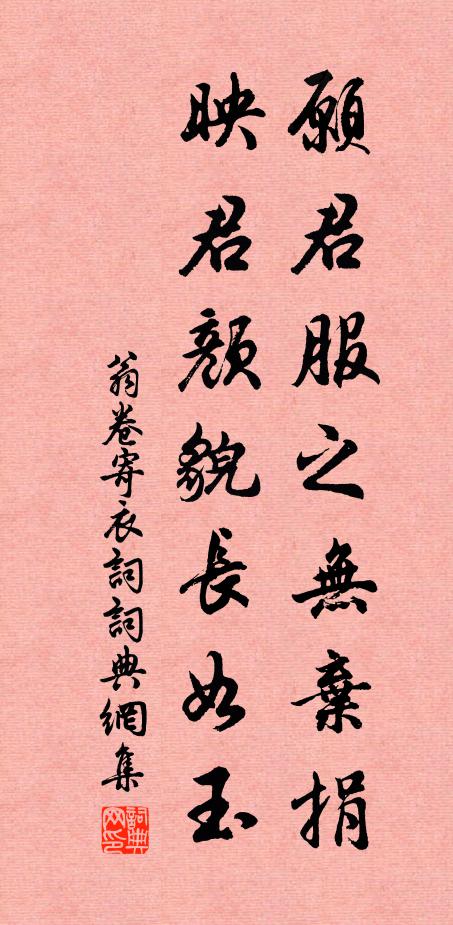 願君服之無棄捐
映君顏貌長如玉
翁卷寄衣詞詞典網集
詞典网印